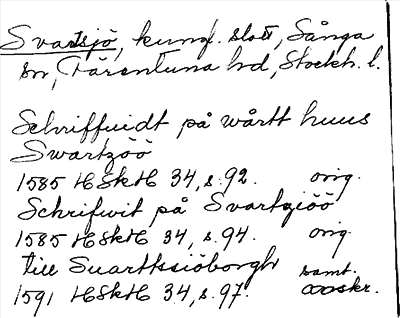 Svartsjö, kungl. slott, Sånga
sn, Färentuna hd, Stockh. l.
Schriffuidt på wårtt huus
Swartzöö
1585 HSkH 34, s. 92. orig.
Schrifwit på Svartziöö
1585 HSkH 34, s. 94. orig.
till Suarttssiöborgh
1591 HSkH 34, s. 97. samt. avskr.